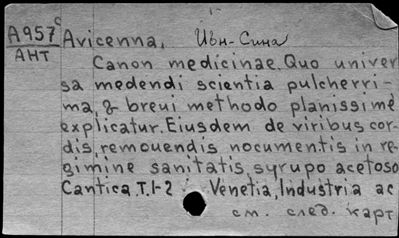 A957c Avicenna, Ибн-Сина
АНТ
Canon medicinae. Quo univer
sa medendi scientia pulcherri-
ma, & breui methodo planissimè
explicatur. Eiusdem de viribus cor-
dis, remouendis nocumentis in re-
gimine sanitatis, syrupo acetoso
Cantica. T. 1-2 Venetia, Industria ac
см. след. карт